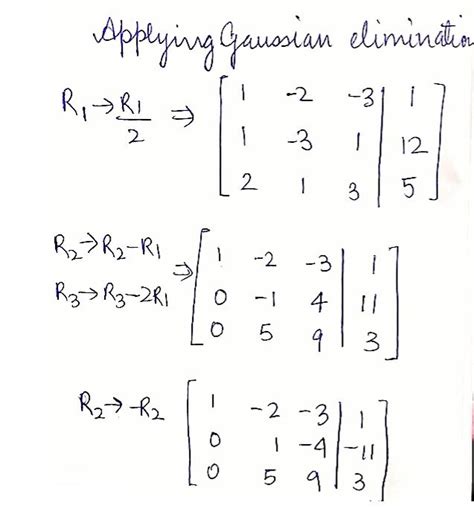 Applying Gaussian elimination
R1→R1/2 ⇒ [1 -2 -3 | 1
1 -3 1 | 12
2 1 3 | 5]
R2→R2-R1 ⇒ [1 -2 -3 | 1
R3→R3-2R1 0 -1 4 | 11
0 5 9 | 3]
R2→-R2 [1 -2 -3 | 1
0 1 -4 | -11
0 5 9 | 3]